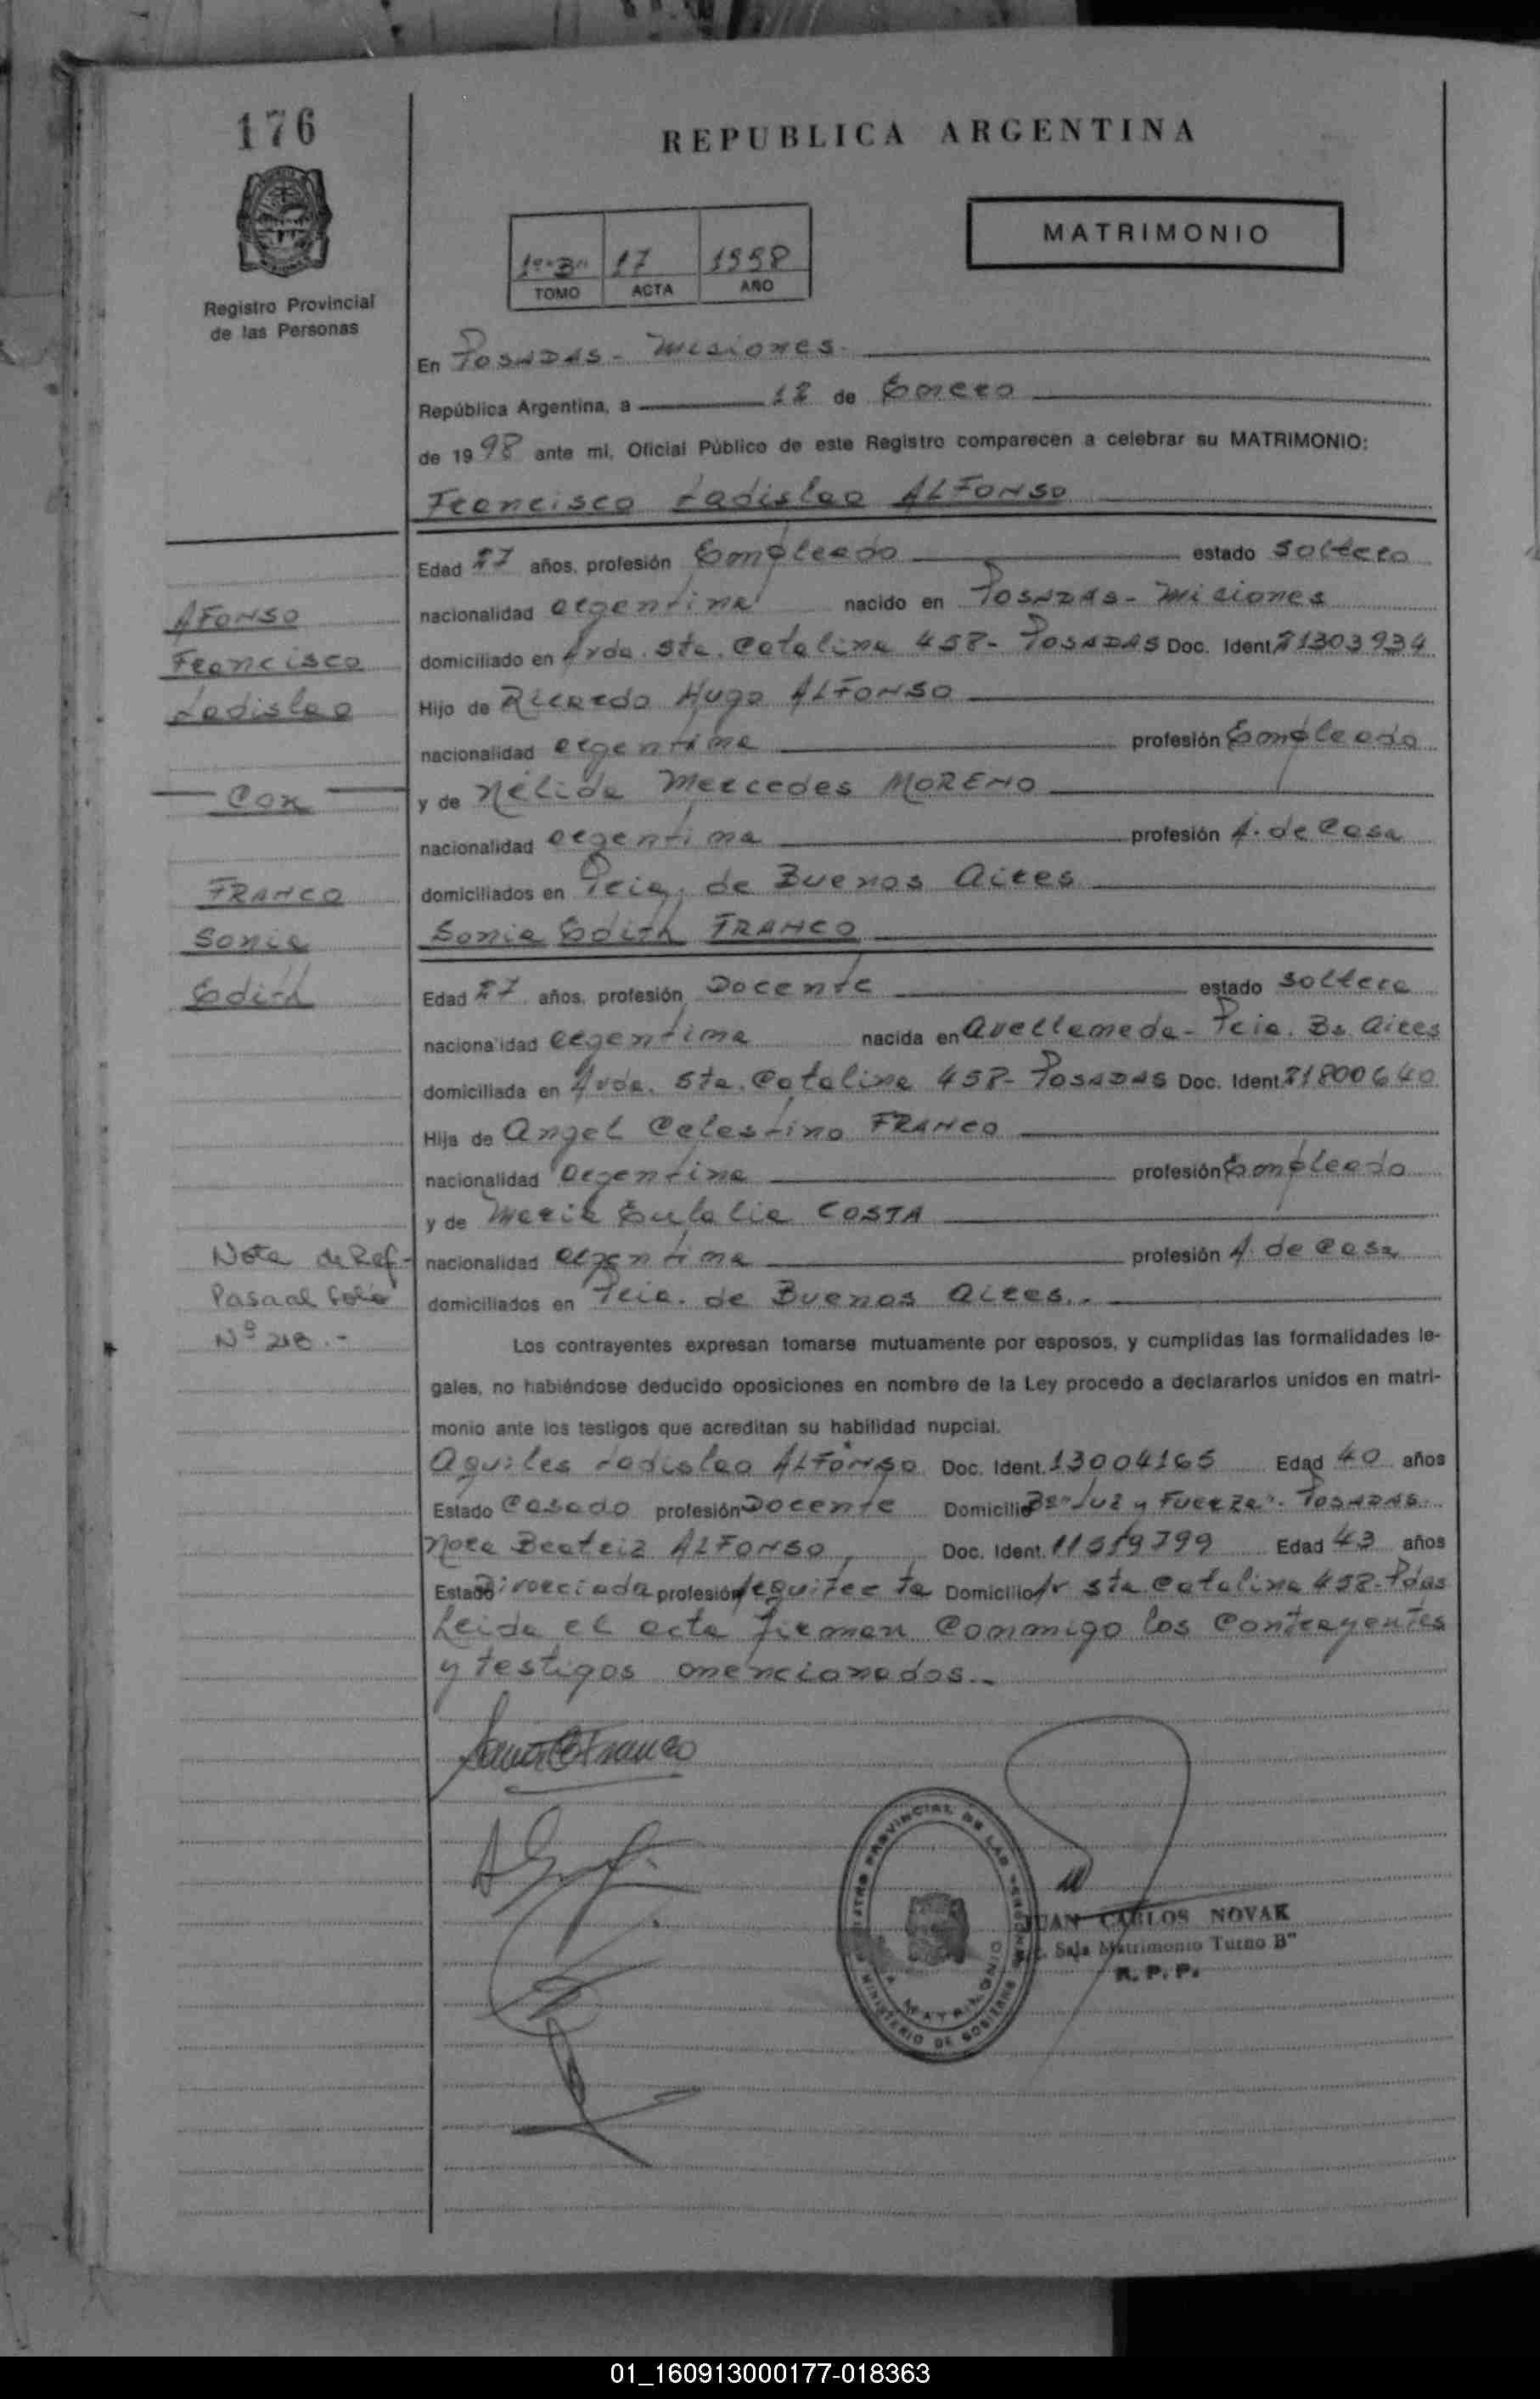 176
REPUBLICA ARGENTINA
MATRIMONIO
1º "B" 17 1998
TOMO ACTA AÑO
Registro Provincial
de las Personas
En POSADAS - Misiones.
República Argentina, a 12 de Enero
de 1998 ante mi, Oficial Público de este Registro comparecen a celebrar su MATRIMONIO:
Francisco Ladislao ALFONSO
Edad 27 años, profesión Empleado estado soltero
AFONSO
nacionalidad argentina nacido en POSADAS - Misiones
Francisco
domiciliado en Avda. Sta. Catalina 458 - POSADAS Doc. Ident. 21303934
Ladislao
Hijo de Ricardo Hugo ALFONSO
nacionalidad argentina profesión Empleado
Con
y de Nélida Mercedes MORENO
nacionalidad argentina profesión A. de Casa
FRANCO
domiciliados en Pcia. de Buenos Aires
Sonia
Sonia Edith FRANCO
Edith
Edad 27 años, profesión Docente estado soltera
nacionalidad argentina nacida en Avellaneda - Pcia. Bs. Aires
domiciliada en Avda. Sta. Catalina 458 - POSADAS Doc. Ident. 21800640
Hija de Angel Celestino FRANCO
nacionalidad argentina profesión Empleado
y de Maria Eulalia COSTA
Nota de Ref-
nacionalidad argentina profesión A. de Casa
Pasa al folio
domiciliados en Pcia. de Buenos Aires..
Nº 218.-
Los contrayentes expresan tomarse mutuamente por esposos, y cumplidas las formalidades le-
gales, no habiéndose deducido oposiciones en nombre de la Ley procedo a declararlos unidos en matri-
monio ante los testigos que acreditan su habilidad nupcial.
Aquiles Ladislao ALFONSO Doc. Ident. 13004165 Edad 40 años
Estado Casado profesión Docente Domicilio Bº "Luz y Fuerza". POSADAS
Nora Beatriz ALFONSO, Doc. Ident. 11519799 Edad 43 años
Estado Divorciada profesión Arquitecta Domicilio Av Sta. Catalina 458 - Pdas
Leida el acta firman conmigo los contrayentes
y testigos mencionados.-
Franco
REGISTRO PROVINCIAL DE LAS PERSONAS
MATRIMONIO
MINISTERIO DE GOBIERNO
JUAN CARLOS NOVAK
Sala Matrimonio Turno B"
R. P. P.
01_160913000177-018363